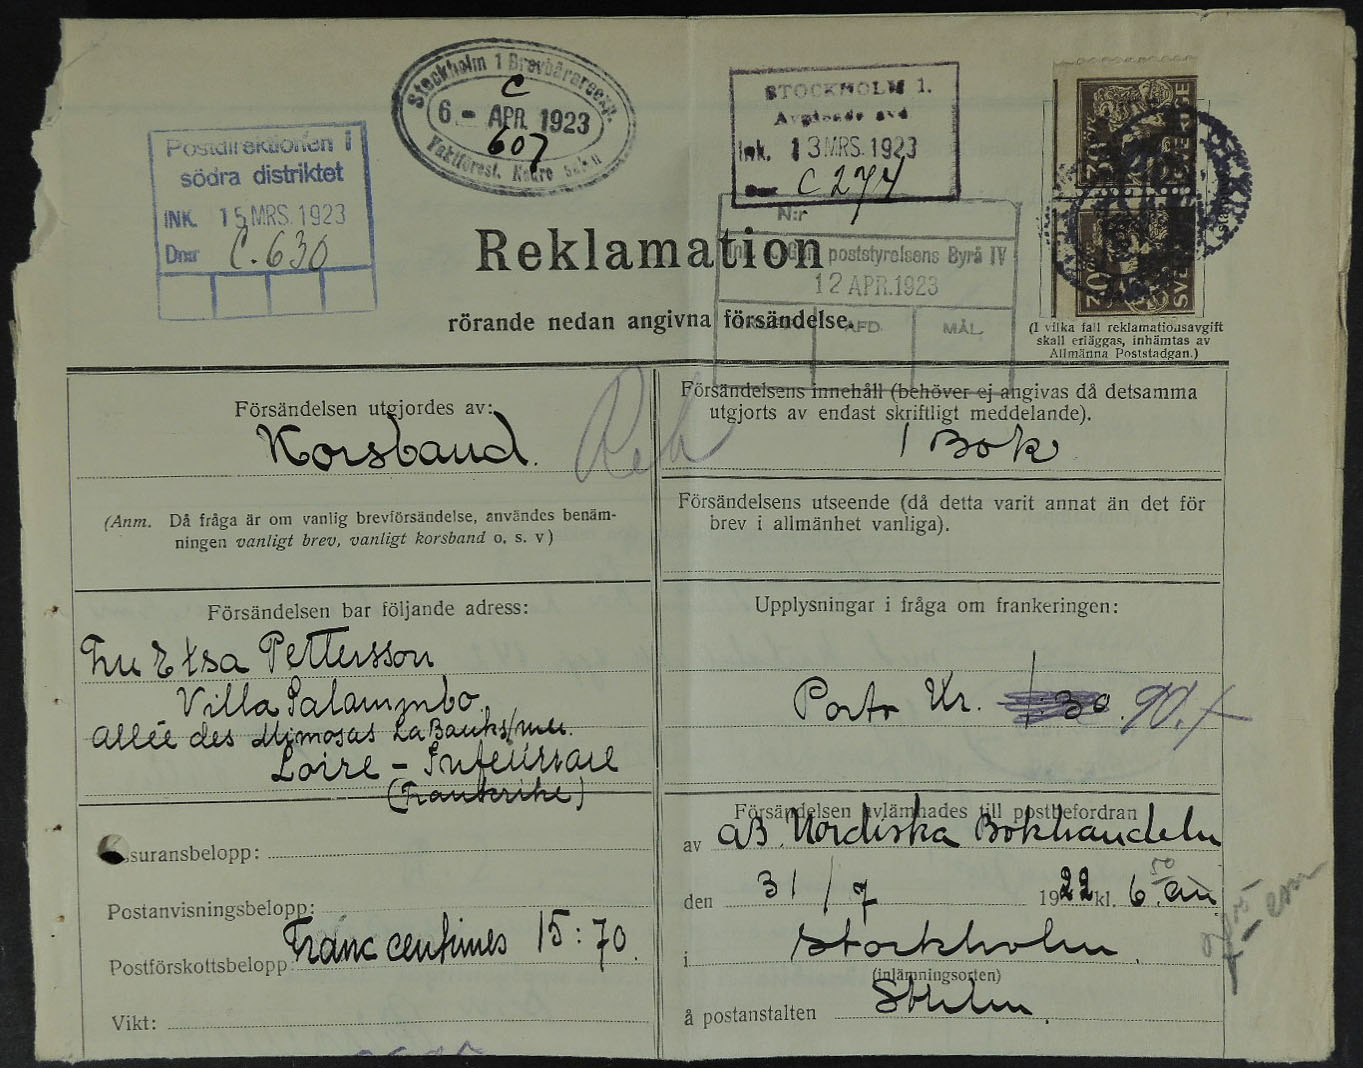 Stockholm 1 Brevbärareexp.
C
6 - APR. 1923
607
STOCKHOLM 1.
Avgående avd
Ink. 13 MRS. 1923
Dnr C 274
Postdirektionen i
södra distriktet
INK. 15 MRS. 1923
Dnr C. 630
N:r
Ink. t. Gen. poststyrelsens Byrå IV
12 APR. 1923
AFD.
MÅL.
SVERIGE
Reklamation
rörande nedan angivna försändelse.
(I vilka fall reklamationsavgift
skall erläggas, inhämtas av
Allmänna Poststadgan.)
Försändelsen utgjordes av:
Korsband.
Reb
(Anm. Då fråga är om vanlig brevförsändelse, användes benäm-
ningen vanligt brev, vanligt korsband o. s. v)
Försändelsen bar följande adress:
Fru Elsa Pettersson
Villa Salammbo
Allée des Mimosas La Baule s/mer.
Loire - Inferieure
(Frankrike)
Assuransbelopp:
Postanvisningsbelopp:
Postförskottsbelopp: Franc centimes 15:70.
Vikt:
Försändelsens innehåll (behöver ej angivas då detsamma
utgjorts av endast skriftligt meddelande).
1 Bok
Försändelsens utseende (då detta varit annat än det för
brev i allmänhet vanliga).
Upplysningar i fråga om frankeringen:
Porto Kr. 1:30. 90.
Försändelsen avlämnades till postbefordran
av AB. Nordiska Bokhandeln
den 31/7 1922 kl. 6.50 em
i Stockholm.
(inlämningsorten)
å postanstalten Sthlm.